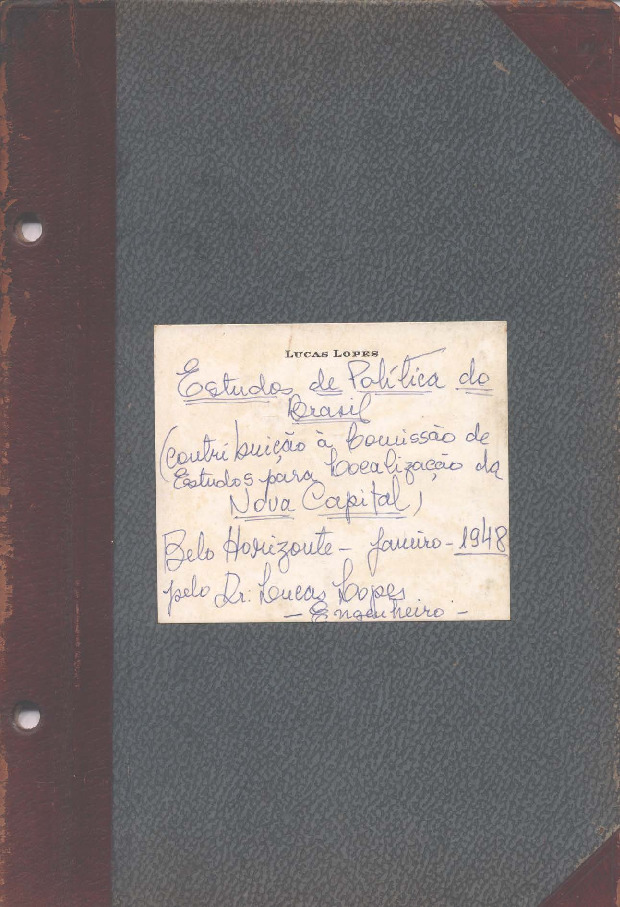 LUCAS LOPES
Estudos de Política do
Brasil
(Contribuição à Comissão de
Estudos para Localização da
Nova Capital)
Belo Horizonte - Janeiro - 1948
pelo Dr. Lucas Lopes
- Engenheiro -